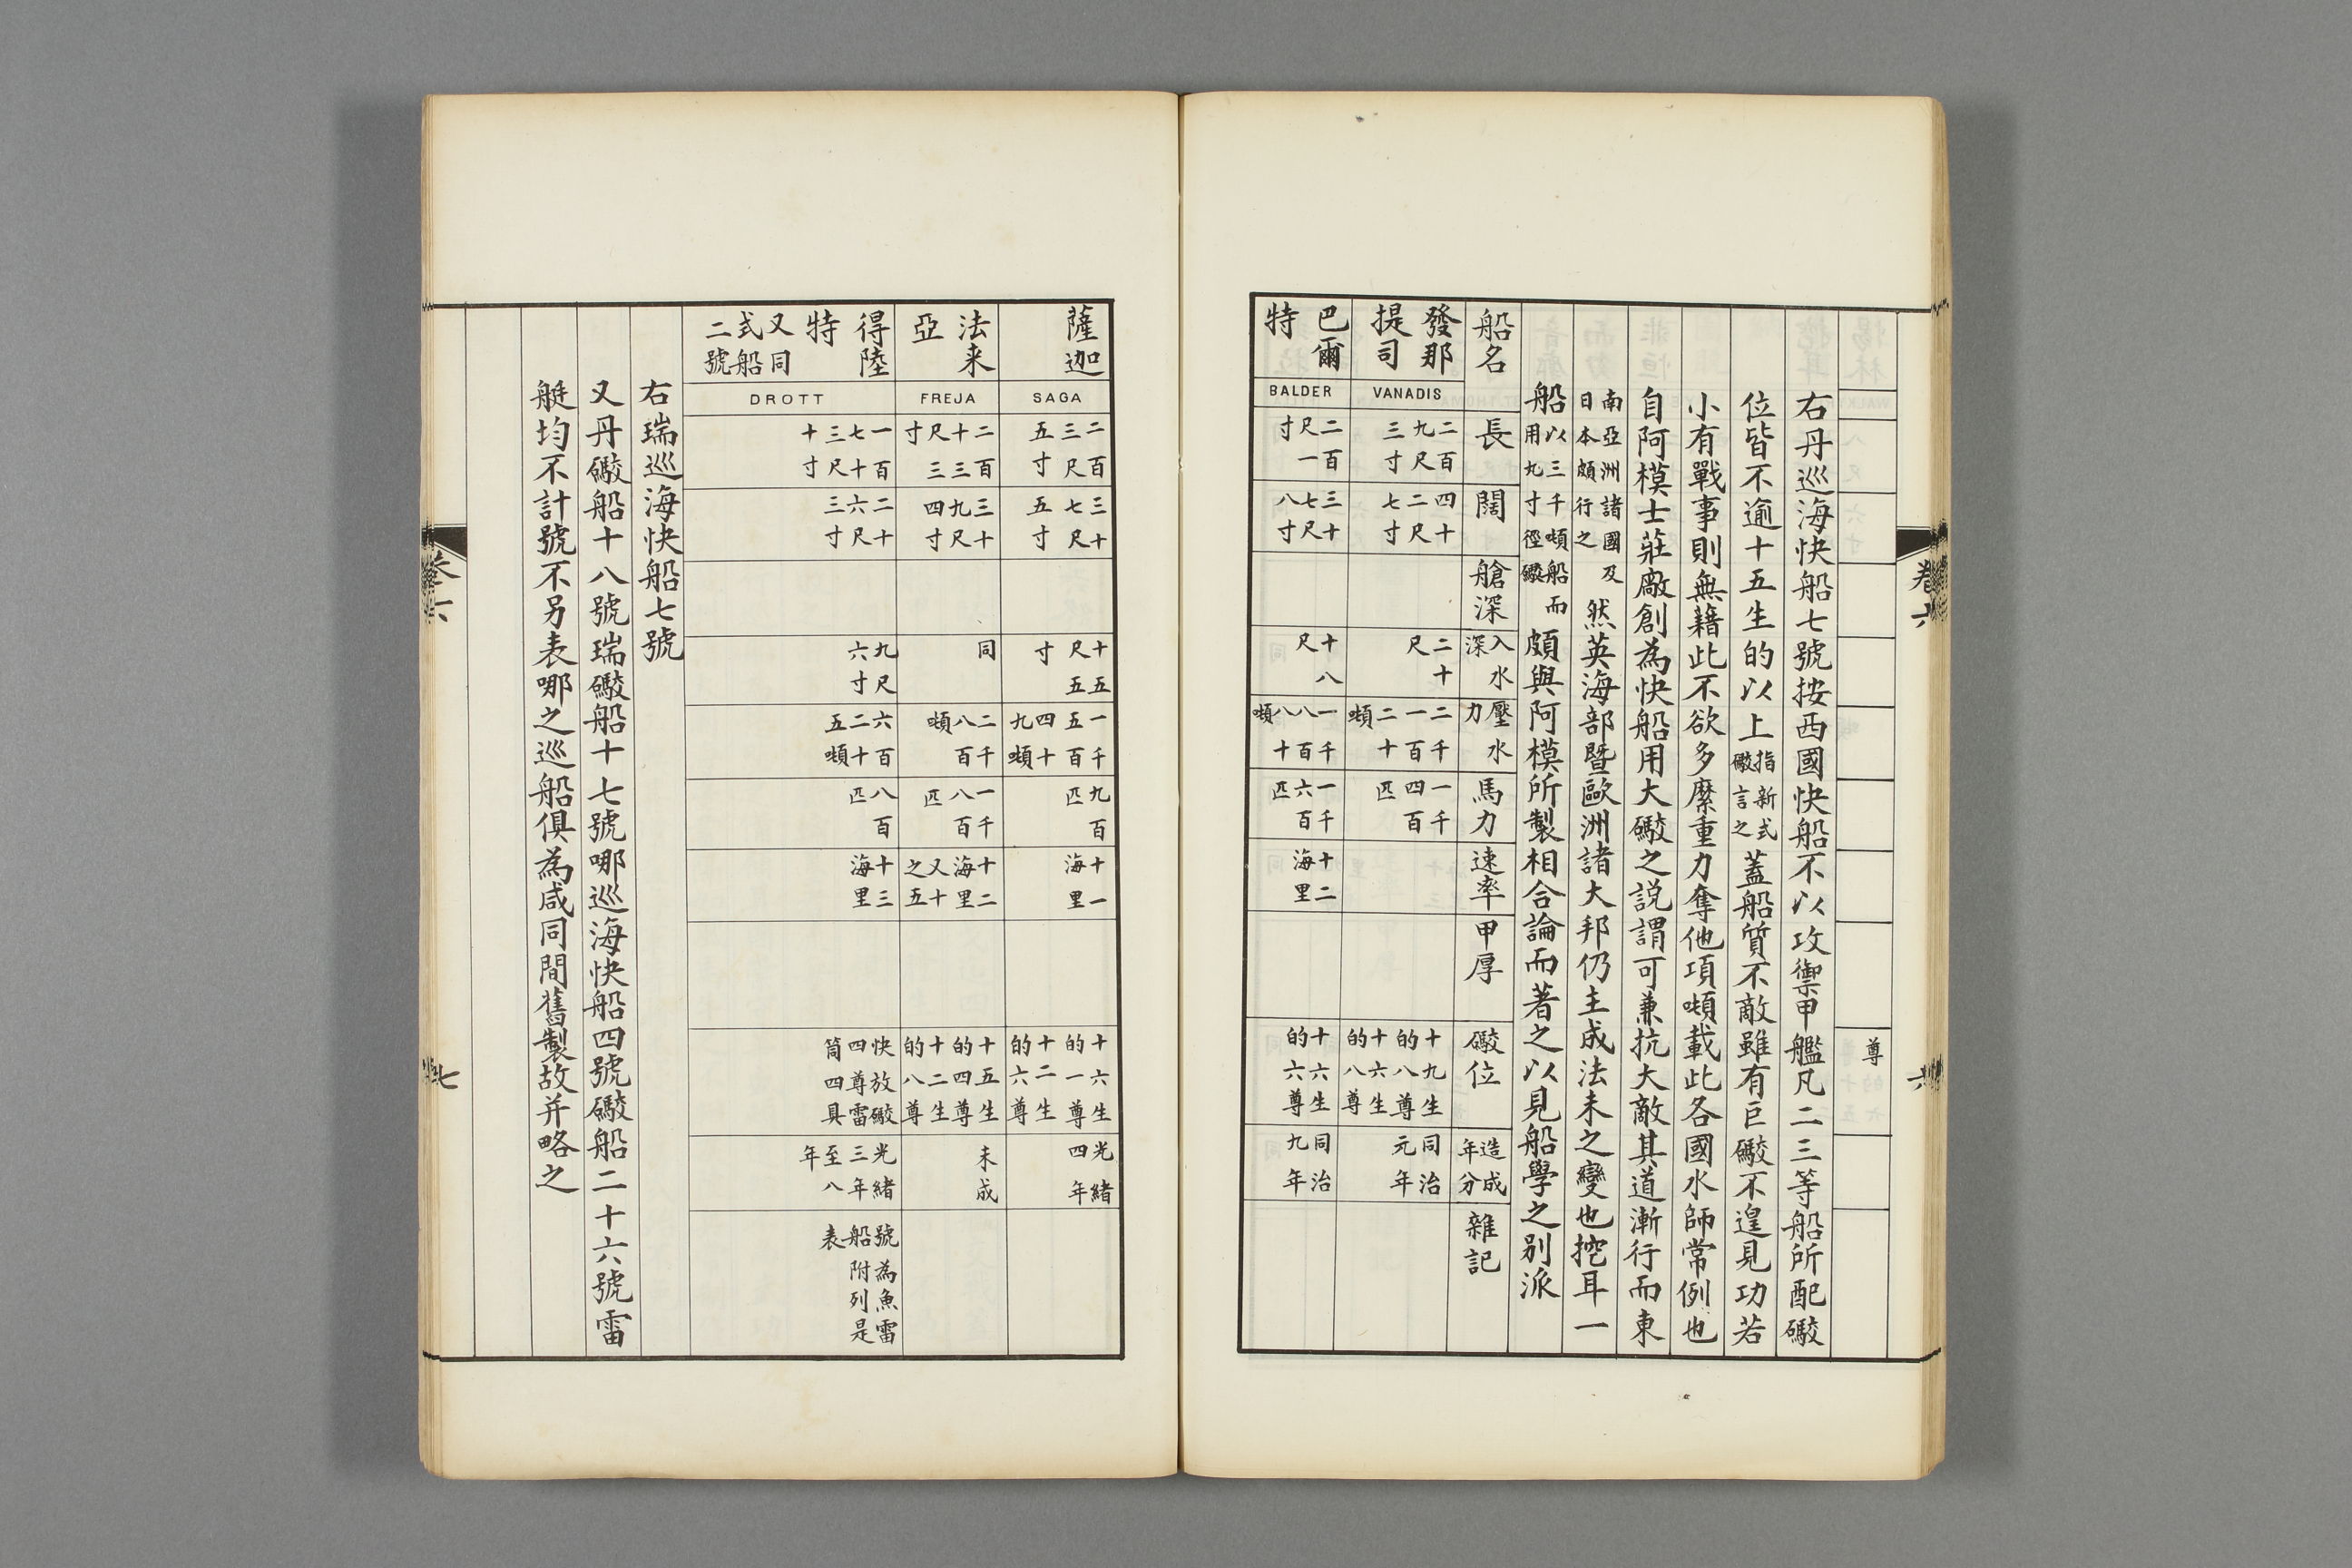 尊
右丹巡海快船七號按西國快船不以攻禦甲艦凡二三等船所配礮
位皆不逾十五生的以上指新式礮言之蓋船質不敵雖有巨礮不遑見功若
小有戰事則無藉此不欲多縻重力奪他項噸載此各國水師常例也
自阿模士莊廠創為快船用大礮之説謂可兼抗大敵其道漸行而東
南亞洲諸國及日本頗行之然英海部暨歐洲諸大邦仍主成法未之變也挖耳一
船以三千噸船而用九寸徑礮頗與阿模所製相合論而著之以見船學之别派
船名 長 闊 艙深 入水深 壓水力 馬力 速率 甲厚 礮位 造成年分 雜記
發那提司 VANADIS 二百九尺三寸 四十二尺七寸 二十尺 二千一百二十噸 一千四百匹 十九生的八尊 十六生的八尊 同治元年
巴爾特 BALDER 二百尺一寸 三十七尺八寸 十八尺 一千八百八十噸 一千六百匹 十二海里 十六生的六尊 同治九年
卷六
六
薩迦 SAGA 二百三尺五寸 三十七尺五寸 十五尺五寸 一千五百四十九噸 九百匹 十一海里 十六生的一尊 十二生的六尊 光緒四年
法來亞 FREJA 二百十三尺三寸 三十九尺四寸 同 二千八百噸 一千八百匹 十二海里又十之五 十五生的四尊 十二生的八尊 未成
得陸特 又同式船二號 DROTT 一百七十三尺十寸 二十六尺三寸 九尺六寸 六百二十五噸 八百匹 十三海里 快放礮四尊雷筒四具 光緒三年至八年 號為魚雷船附列是表
右瑞巡海快船七號
又丹礮船十八號瑞礮船十七號哪巡海快船四號礮船二十六號雷
艇均不計號不另表哪之巡船俱為咸同間舊製故并略之
卷六
七